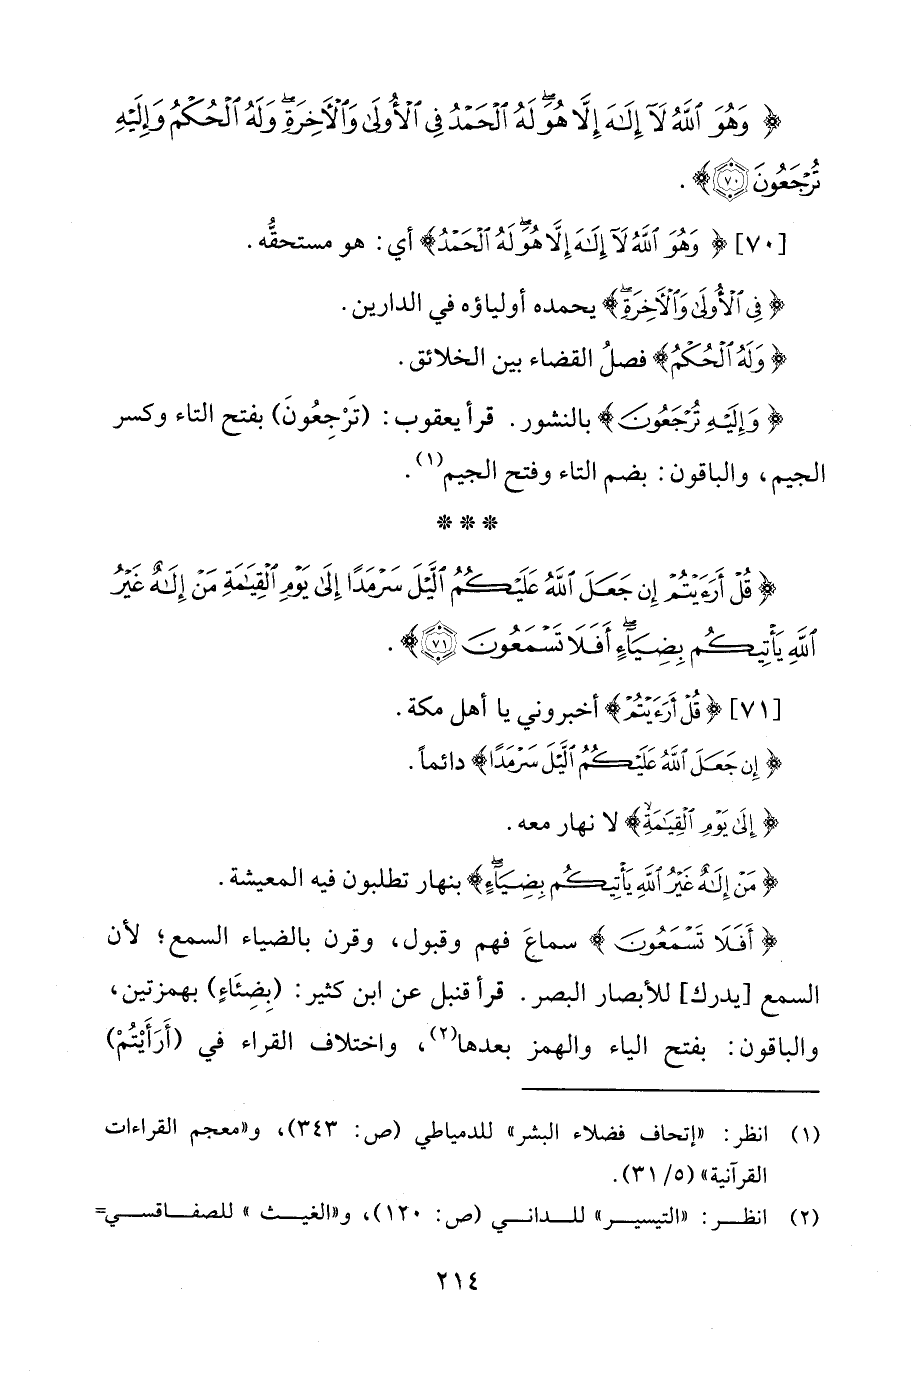 ﴿ وَهُوَ ٱللَّهُ لَآ إِلَٰهَ إِلَّا هُوَۖ لَهُ ٱلْحَمْدُ فِى ٱلْأُولَىٰ وَٱلْآخِرَةِۖ وَلَهُ ٱلْحُكْمُ وَإِلَيْهِ
تُرْجَعُونَ ٧٠ ﴾ .
[٧٠] ﴿ وَهُوَ ٱللَّهُ لَآ إِلَٰهَ إِلَّا هُوَۖ لَهُ ٱلْحَمْدُ ﴾ أي: هو مستحقُّه .
﴿ فِى ٱلْأُولَىٰ وَٱلْآخِرَةِۖ ﴾ يحمده أولياؤه في الدارين .
﴿ وَلَهُ ٱلْحُكْمُ ﴾ فصلُ القضاء بين الخلائق .
﴿ وَإِلَيْهِ تُرْجَعُونَ ﴾ بالنشور . قرأ يعقوب: (تَرْجِعُونَ) بفتح التاء وكسر
الجيم، والباقون: بضم التاء وفتح الجيم(١) .
* * *
﴿ قُلْ أَرَءَيْتُمْ إِن جَعَلَ ٱللَّهُ عَلَيْكُمُ ٱلَّيْلَ سَرْمَدًا إِلَىٰ يَوْمِ ٱلْقِيَٰمَةِ مَنْ إِلَٰهٌ غَيْرُ
ٱللَّهِ يَأْتِيكُم بِضِيَآءٍۖ أَفَلَا تَسْمَعُونَ ٧١ ﴾ .
[٧١] ﴿ قُلْ أَرَءَيْتُمْ ﴾ أخبروني يا أهل مكة .
﴿ إِن جَعَلَ ٱللَّهُ عَلَيْكُمُ ٱلَّيْلَ سَرْمَدًا ﴾ دائماً .
﴿ إِلَىٰ يَوْمِ ٱلْقِيَٰمَةِۙ ﴾ لا نهار معه .
﴿ مَنْ إِلَٰهٌ غَيْرُ ٱللَّهِ يَأْتِيكُم بِضِيَآءٍۖ ﴾ بنهار تطلبون فيه المعيشة .
﴿ أَفَلَا تَسْمَعُونَ ﴾ سماعَ فهم وقبول، وقرن بالضياء السمع؛ لأن
السمع [يدرك] للأبصار البصر . قرأ قنبل عن ابن كثير: (بِضِئَاءٍ) بهمزتين،
والباقون: بفتح الياء والهمز بعدها(٢)، واختلاف القراء في (أَرَأَيْتُمْ)
(١) انظر: «إتحاف فضلاء البشر» للدمياطي (ص: ٣٤٣)، و«معجم القراءات
القرآنية» (٥/ ٣١).
(٢) انظر: «التيسير» للداني (ص: ١٢٠)، و«الغيث» للصفاقسي=
٢١٤